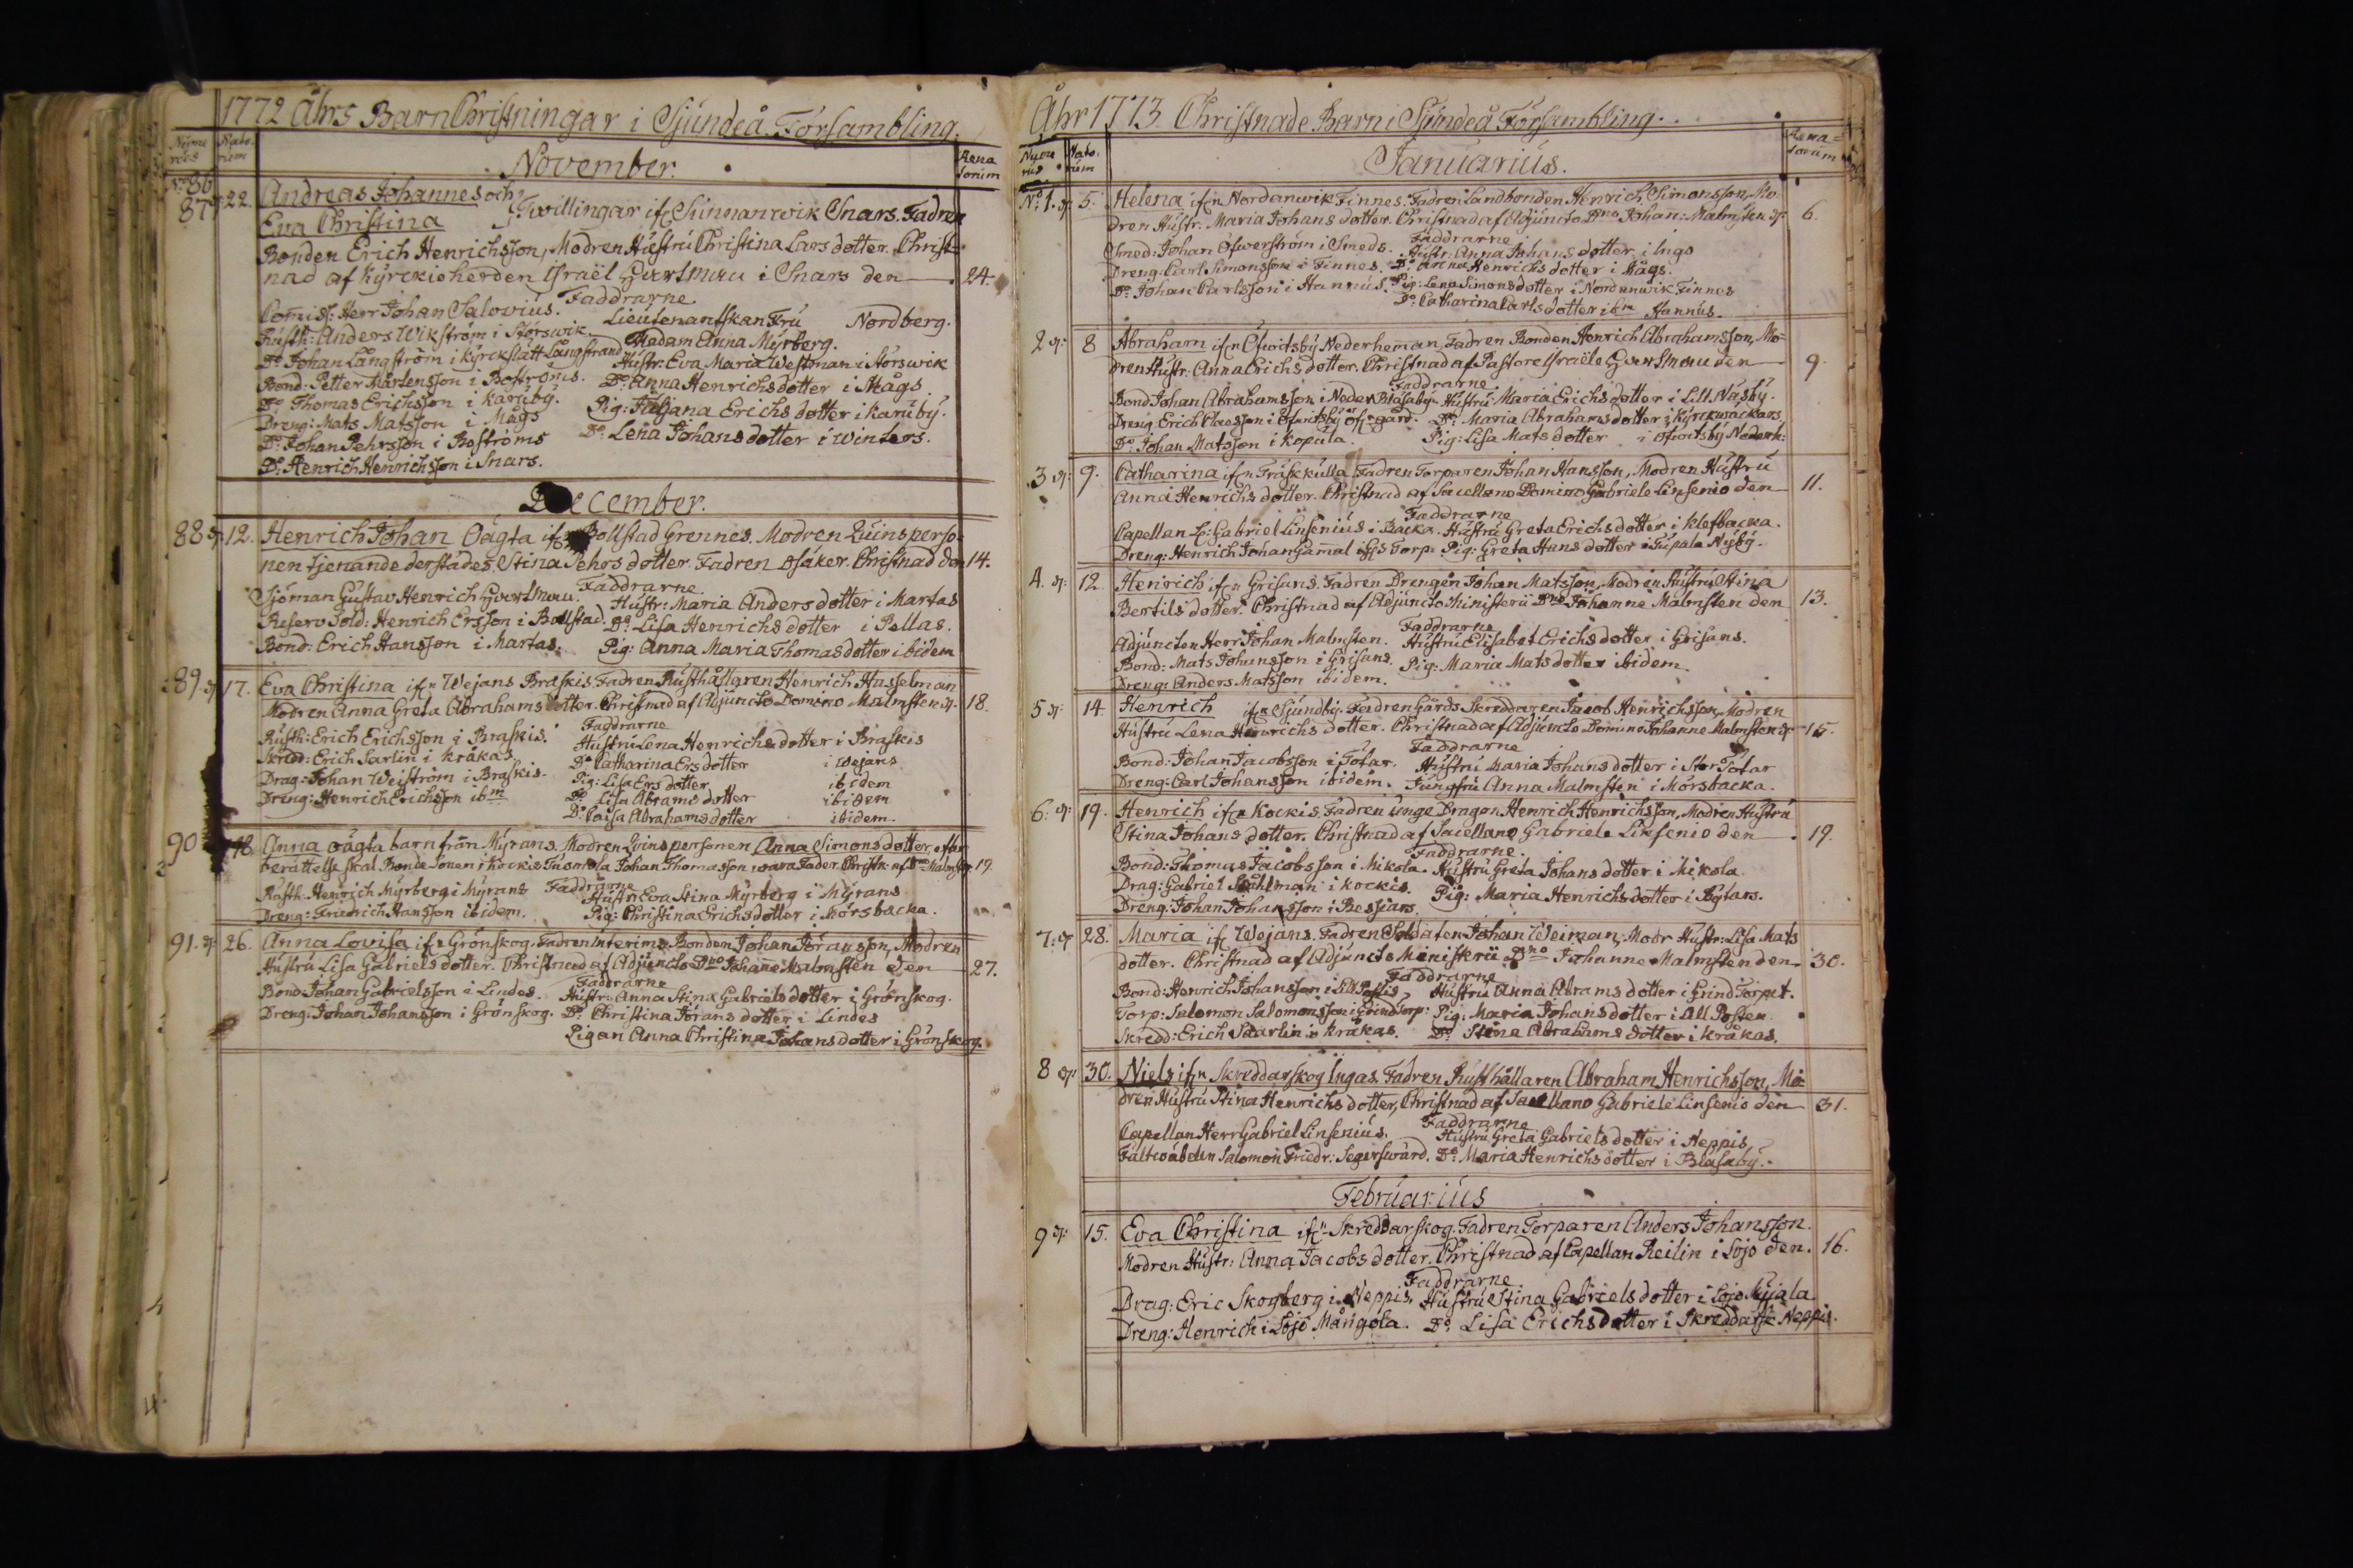 1772 Åhrs BarnChristningar i Sjúndeå Försambling.
Nume rus Nato. rum
November.
Rena torum
No 86 22. Andreas Johannes och
87 Eva Christina Twillingar ifr Sunnanwik Snars. Fadren
Bonden Erich Henrichsson, Modren Hústrú Christina Lars dotter. Christ-
nad af Kyrckioherden Israël i Snars den 24.
Faddrarne
Comiss: Herr Johan Salovius. Lieutenantskan Frú Nordberg.
Rústh: Anders Wikström i Störswik. Madam Anna Myrberg.
Do Johan Långström i Kyrckslätt Långstrand Hústr: Eva Maria Westman i Störswik
Bond: Petter Mårtensson i Boströms. Do Anna Henrichs dotter i Mågs
Do Thomas Erichsson i Karúby. Pig: Júljana Erichs dotter i Karúby.
Dreng: Mats Matsson i Mågs Do Lena Johans dotter i Winters.
Do Johan Pehrsson i Boströms
Do Henrich Henrichsson i Snars.
December.
88 12. Henrich Johan Oägta ifr Bollstad Grennes. Modren Quinsperso-
nen tjenande derstädes, Stina Pehrs dotter. Fadren osäker. Christnad den 14.
Faddrarne
Sjöman Gustav Henrich Hústr: Maria Anders dotter i Martas
Reserv Sold: Henrich Ersson i Bollstad. Do Lisa Henrichs dotter i Pellas.
Bond: Erich Hansson i Martas. Pig: Anna Maria Thomas dotter ibidem
89 17. Eva Christina ifrn Wejans Braskis. Fadren Rústhållaren Henrich Hasselman
Modren Anna Greta Abrahams dotter. Christnad af Adjúncto Domino Malmsten 18.
Faddrarne
Rústh: Erich Erichsson i Braskis. Hústrú Lena Henrichs dotter i Braskis
Skredd: Erich Sarlin i Kråkas. Do Catharina Ers dotter i Wejans
Drag: Johan Weiström i Braskis. Pig: Lisa Ers dotter ibidem
Dreng: Henrich Erichsson ibm Do Lisa Abrams dotter ibidem
Do Caisa Abrahams dotter ibidem.
90 18. Anna oägta barn från Myrans. Modren Qvinspersonen Anna Simons dotter, efter
berättelse skal Bonde Sonen i Kockis Johan Thomasson, vara Fader. Christn: af Dno Malmsten 19.
Faddrarne
Rústh: Henrich Myrberg i Myrans Hústr: Eva Stina Myrberg i Myrans
Dreng: Friedrich Hansson ibidem. Pig: Christina Erichs dotter i Mörsbacka.
91. 26. Anna Lovisa ifrn Grönskog. Fadren Interims Bonden Johan Jöransson, Modren
Hústrú Lisa Gabriels dotter. Christnad af Adjúncto Dno Johanne Malmsten den 27.
Faddrarne
Bond: Johan Gabrielsson i Lindes. Hústr: Anna Stina Gabriels dotter i Grönskog.
Dreng: Johan Johansson i Grönskog. Do Christina Jörans dotter i Lindes
Pigan Anna Christina Johans dotter i Grönskog.
Åhr 1773. Christnade Barn i Sjúndeå Försambling.
Nume rus Nato. rum
Januarius.
Rena= torum
No 1. 5. Helena ifrn Nordanwik Finnes. Fadren Landbonden Henrich Simonsson, Mo-
dren Hústr: Maria Johans dotter. Christnad af Adjúncto Dno Johan: Malmsten 6.
Faddrarne
Smed: Johan Öfwerström i Smeds. Hústr: Anna Johans dotter i Ingo
Dreng: Carl Simonsson i Finnes. Do Anna Henrichs dotter i Mågs.
Do Johan Carlsson i Hannús. Pig: Lena Simons dotter i Nordanwik Finnes
Do Catharina Carls dotter ibm Hannús.
2 8 Abraham ifrn Ofwitsby Nederheman. Fadren Bonden Henrich Abrahamsson, Mo-
dren Hústr: Anna Erichs dotter. Christnad af Pastore Israële den 9.
Faddrarne
Bond: Johan Abrahamsson i Neder Blåsaby. Hústrú Maria Erichs dotter i Lill Näsby.
Dreng Erich Claesson i Ofwitsby Öf-gård. Do Maria Abrahams dotter i Kyrckwackars
Do Johan Matsson i Kopúla. Pig: Lisa Mats dotter i Ofwitsby Nederh:
3 9. Catharina ifrn Träskkulla. Fadren Torparen Johan Hansson, Modren Hústrú
Anna Henrichs dotter. Christnad af Sacellano Domino Gabriele Linsenio den 11.
Faddrarne
Capellan H: Gabriel Linsenius i Backa. Hústrú Greta Erichs dotter i Klefbacka.
Dreng: Henrich Johan Gamal Torp: Pig: Greta Hans dotter i Túpala Nyby.
4. 12 Henrich ifrn Grisans. Fadren Drengen Johan Matsson, Modren Hústrú Stina
Bertils dotter. Christnad af Adjúncto Ministerii Dno Johanne Malmsten den 13.
Faddrarne
Adjúncten Herr Johan Malmsten. Hústrú Elisabet Erichs dotter i Grisans.
Bond: Mats Johansson i Grisans. Pig: Maria Mats dotter ibidem.
Dreng: Anders Matsson ibidem.
5 14. Henrich ifrn Sjúndby. Fadren Gårds Skreddaren Jacob Henrichsson, Modren
Hústrú Lena Henrichs dotter. Christnad af Adjúncto Domino Johanne Malmsten 15.
Faddrarne
Bond: Johan Jacobsson i Tötar. Hústrú Maria Johans dotter i Stor Tötar
Dreng: Carl Johansson ibidem. Jungfrú Anna Malmsten i Mörsbacka.
6. 19. Henrich ifrn Kockis. Fadren unge Dragon Henrich Henrichsson, Modren Hústrú
Stina Johans dotter. Christnad af Sacellano Gabriele Linsenio den 19.
Faddrarne.
Bond: Thomas Jacobsson i Mikola. Hústrú Greta Johans dotter i Mikola.
Drag: Gabriel Ståhlman i Kockis. Pig: Maria Henrichs dotter i Bytars.
Dreng: Johan Johansson i Bessjars.
7. 28. Maria ifr Wejans. Fadren Soldaten Johan Weiman, Modr Hústr: Lisa Mats
dotter. Christnad af Adjúncto Ministerii Dno Johanne Malmsten den 30.
Faddrarne
Bond: Henrich Johansson i Lill Hústrú Anna Abrams dotter i Grind Torpet.
Torp: Salomon Salomonsson i Grind Torp: Pig: Maria Johans dotter i Lill
Skredd: Erich Saarlin i Kråkas. Do Stina Abrahams dotter i Kråkas.
8 30. Niels ifrn Skreddarskog Ingas. Fadren Rústhållaren Abraham Henrichsson, Mo-
dren Hústrú Stina Henrichs dotter, Christnad af Sacellano Gabriele Linsenio den 31.
Faddrarne
Capellan Herr Gabriel Linsenius. Hústrú Greta Gabriels dotter i Neppis
Fältwäbeln Salomon Friedr: Segerswärd. Do Maria Henrichs dotter i Blåsaby.
Februarius
9 15. Eva Christina ifrn Skreddarskog. Fadren Torparen Anders Johansson.
Modren Hústr: Anna Jacobs dotter. Christnad af Capellan Reilin i Lojo den. 16.
Faddrarne
Drag: Eric Skogberg i Neppis. Hústrú Stina Gabriels dotter i Lojo
Dreng: Henrich i Lojo Mångola. Do Lisa Erichs dotter i Skreddarsk: Neppis.